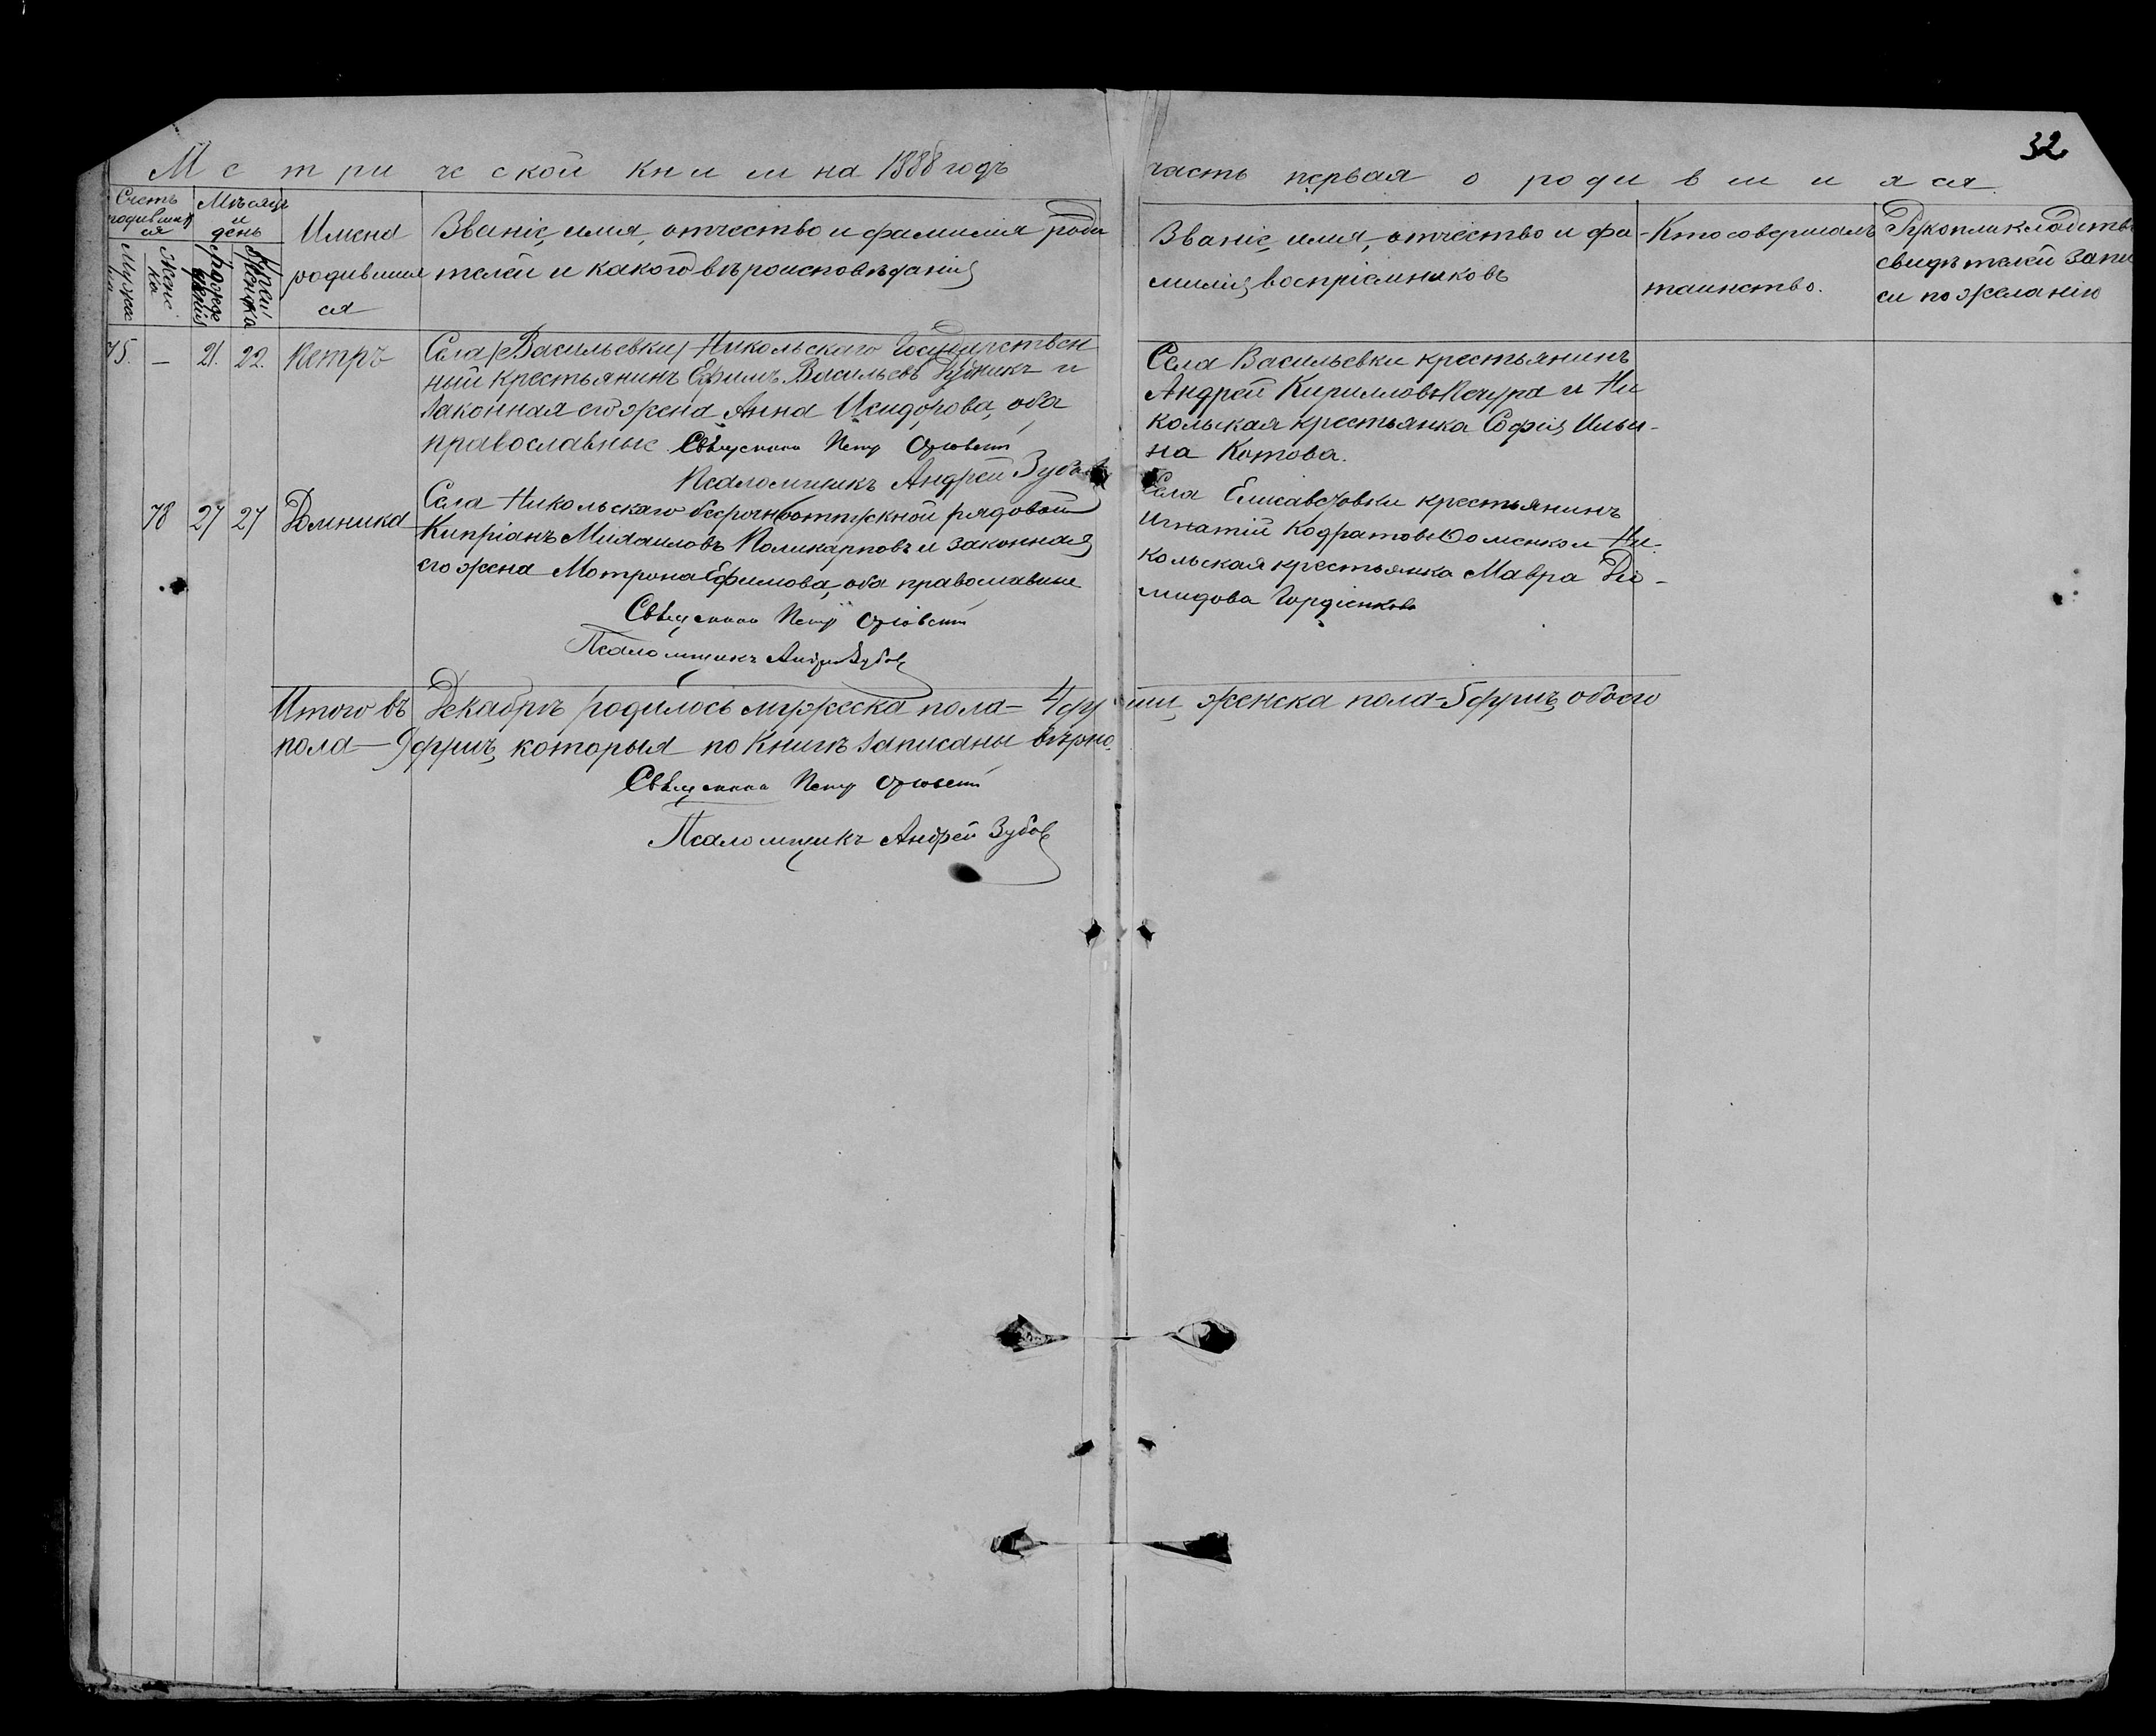 32
Метрической книги на 1888 годъ часть первая о родившихся.
Счетъ родившихся
Мужеска
Женска
Мѣсяцъ и день
рожденія
крещенія
Имена родившихся
Званіе, имя, отчество и фамилія родителей и какого вѣроисповѣданія
Званіе, имя, отчество и фамилія воспріемниковъ
Кто совершалъ таинство.
Рукоприкладство свидѣтелей записи по желанію
75. — 21. 22. Петръ
Села (Васильевки) Никольскаго Государствен
ный крестьянинъ Ефимъ Васильевъ Рудникъ и
законная его жена Анна Исидорова, оба
православные Священникъ Петръ
Псаломщикъ Андрей Зубовъ
Села Васильевки крестьянинъ
Андрей Кирилловъ Печура и Ни
кольская крестьянка Софія Ильи-
на Котова.
78 27 27 Домника
Села Никольскаго безсрочноотпускной рядовой
Кипріанъ Михаиловъ Поликарповъ и законная
его жена Мотрона Ефимова, оба православные
Священникъ Петръ
Псаломщикъ Андрей Зубовъ
Села Елисаветовки крестьянинъ
Игнатій Кодратовъ Фоменко и Ни-
кольская крестьянка Мавра Дiо-
мидова Гордіенкова
Итого въ Декабрѣ родилось мужеска пола - 4 души, женска пола - 5 душъ, обоего
пола - 9 душъ, которыя по книгѣ записаны вѣрно.
Священникъ Петръ
Псаломщикъ Андрей Зубовъ